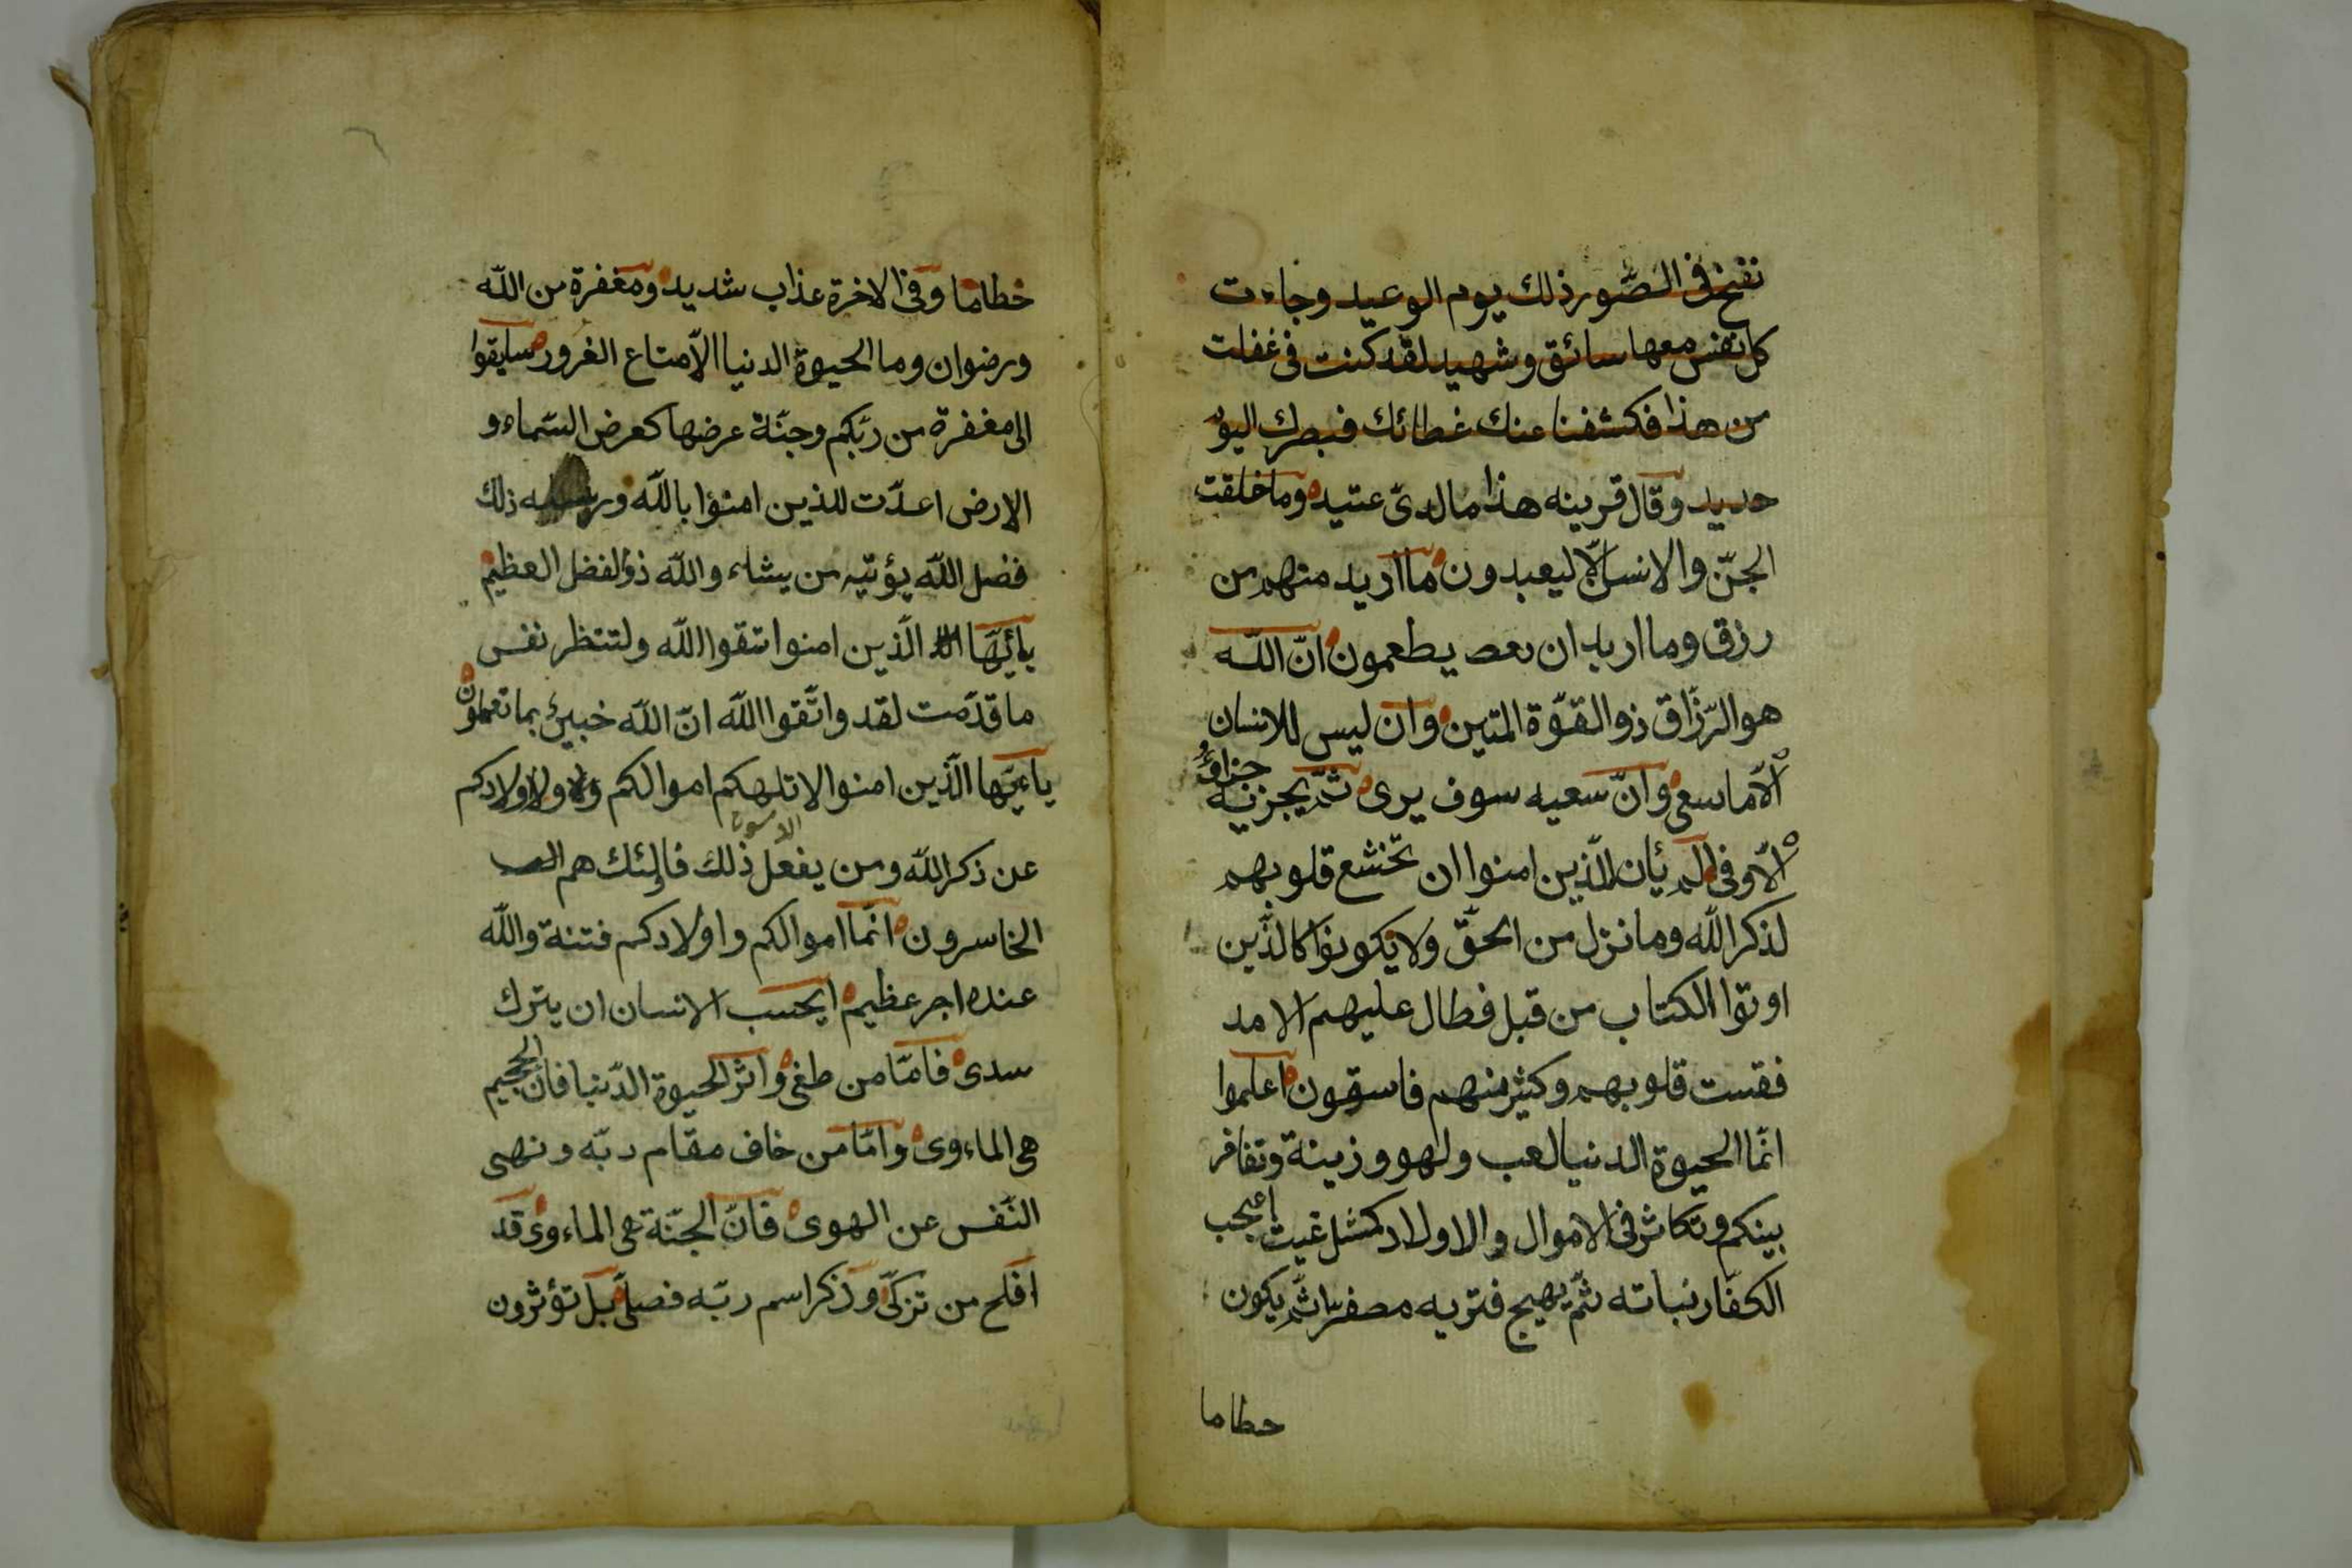 نفخ فى الصّور ذلك يوم الوعيد وجاءت
كل نفس معها سائق وشهيد لقد كنت فى غفلت
من هذا فكشفنا عنك غطائك فبصرك اليو
حديد وقال قرينه هذا ما لدىّ عتيد وما خلقت
الجنّ والانس الّا ليعبدون ما اريد منهم من
رزق وما اريد ان يطعمون انّ اللّه
هو الرّزّاق ذو القوّة المتين وان ليس للانسان
الّا ما سعى وانّ سعيه سوف يرى ثمّ يجزيه جزاؤ
الاوفى الم يأن للّذين امنوا ان تخشع قلوبهم
لذكر اللّه وما نزل من الحقّ ولا يكونوا كالّذين
اوتوا الكتاب من قبل فطال عليهم الامد
فقست قلوبهم وكثير منهم فاسقون اعلموا
انّما الحيوة الدنيا لعب ولهو وزينة وتفاخر
بينكم وتكاثر فى الاموال والاولاد كمثل غيث اعجب
الكفّار نباته ثمّ يهيج فتريه مصفرّا ثمّ يكون
حطاما
خطاما وفى الاخرة عذاب شديد ومغفرة من اللّه
ورضوان وما الحيوة الدنيا الّا متاع الغرور سابقوا
الى مغفرة من ربّكم وجنّة عرضها كعرض السّماء و
الارض اعدّت للذين امنوا باللّه ورسله ذلك
فضل اللّه يؤتيه من يشاء واللّه ذو الفضل العظيم
يأيّها الّذين امنوا اتقوا اللّه ولتنظر نفس
ما قدّمت لقد واتّقوا اللّه انّ اللّه خبير بما تعملون
ياءيّها الّذين امنوا لا تلهكم اموالكم ولا اولادكم
عن ذكر اللّه ومن يفعل ذلك فاولئك هم
الخاسرون انّما اموالكم واولادكم فتنة واللّه
عنده اجر عظيم ايحسب الانسان ان يترك
سدى فامّا من طغى واثر الحيوة الدّنيا فانّ الجحيم
هى الماءوى وامّا من خاف مقام ربّه ونهى
النّفس عن الهوى فانّ الجنّة هى الماءوى قد
افلح من تزكّى وذكر اسم ربّه فصلّى بل تؤثرون